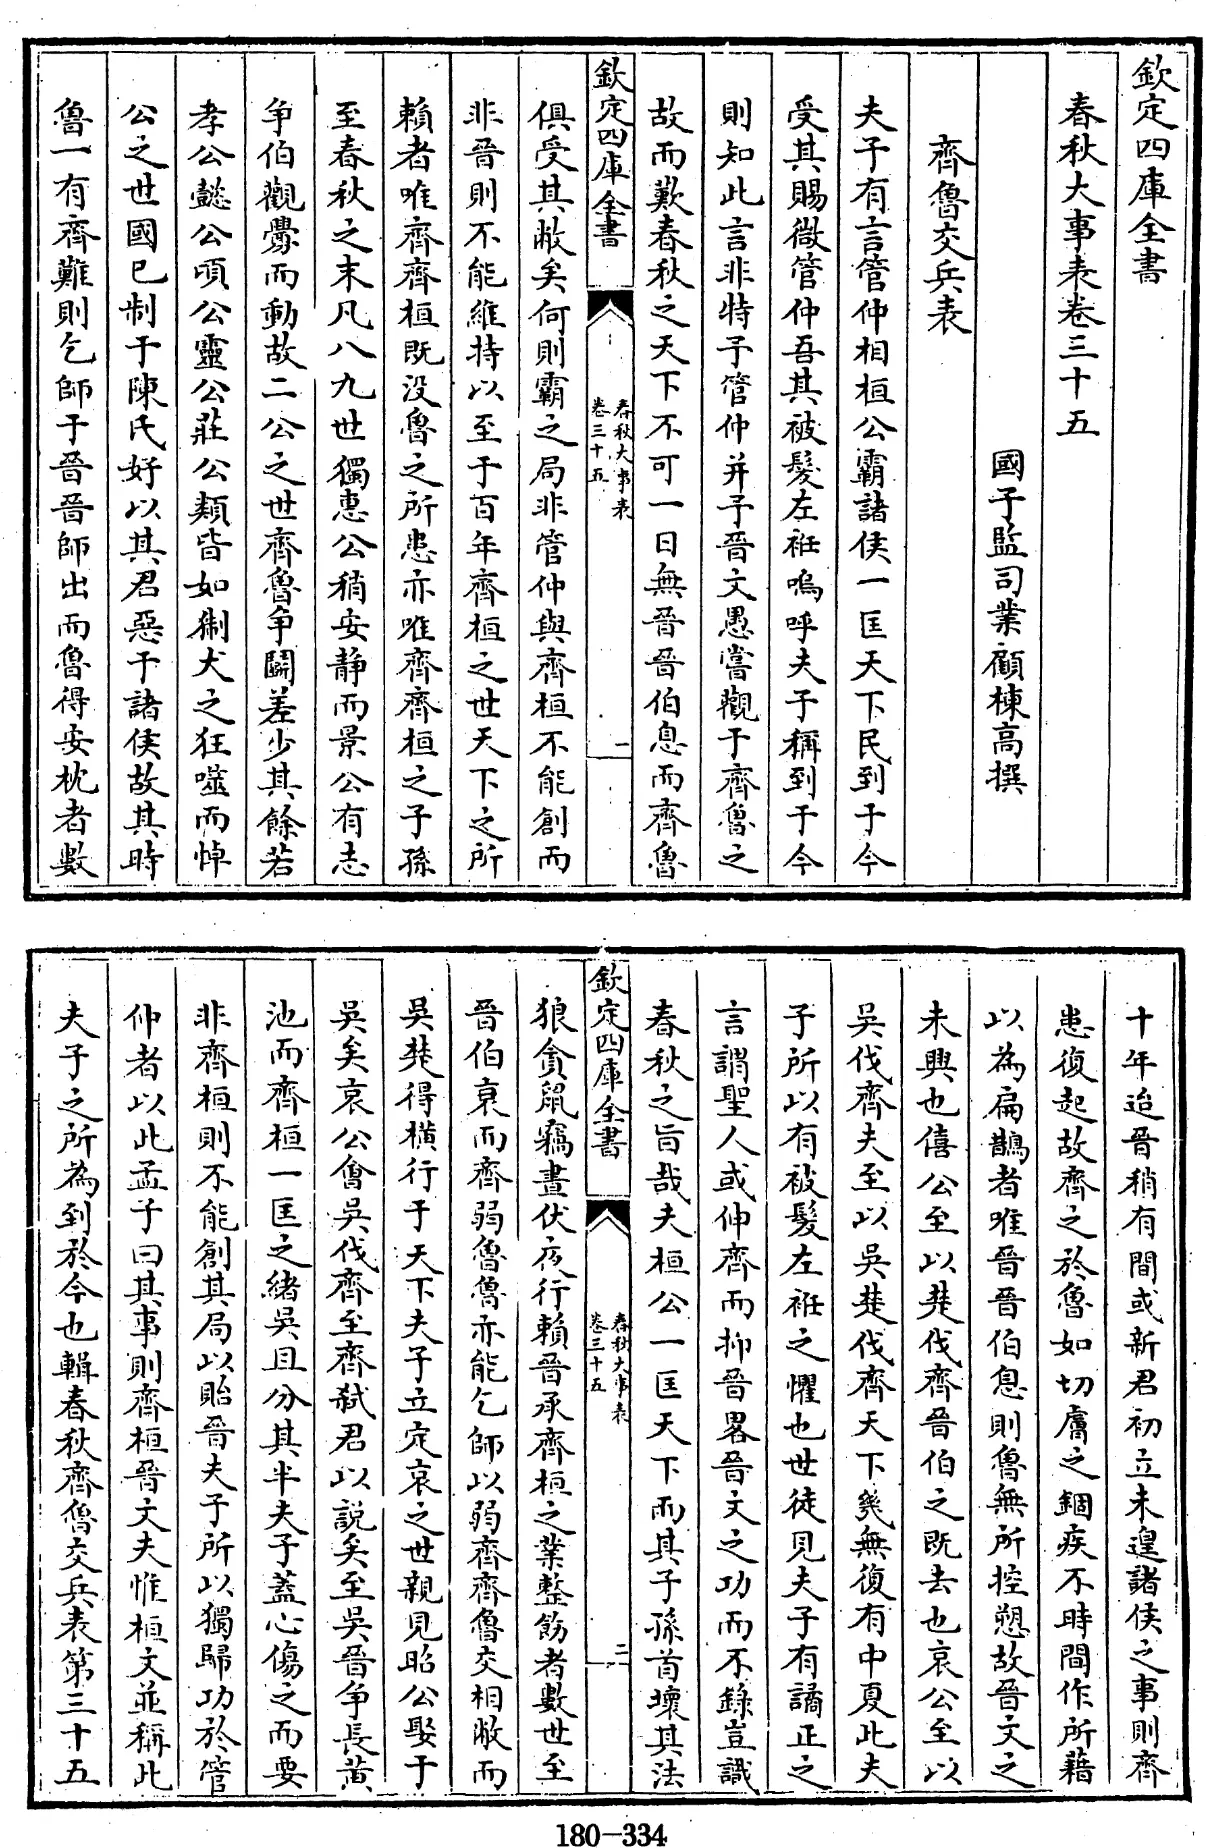 欽定四庫全書
春秋大事表卷三十五
國子監司業顧棟高撰
齊魯交兵表
夫子有言管仲相桓公霸諸侯一匡天下民到于今
受其賜微管仲吾其被髮左衽嗚呼夫子稱到于今
則知此言非特予管仲并予晉文愚嘗觀于齊魯之
故而歎春秋之天下不可一日無晉晉伯息而齊魯
欽定四庫全書
春秋大事表
卷三十五
一
俱受其敝矣何則霸之局非管仲與齊桓不能創而
非晉則不能維持以至于百年齊桓之世天下之所
賴者唯齊齊桓既没魯之所患亦唯齊齊桓之子孫
至春秋之末凡八九世獨惠公稍安靜而景公有志
爭伯觀釁而動故二公之世齊魯爭鬭差少其餘若
孝公懿公頃公靈公莊公類皆如猘犬之狂噬而悼
公之世國已制于陳氏好以其君惡于諸侯故其時
魯一有齊難則乞師于晉晉師出而魯得安枕者數
十年迨晉稍有間或新君初立未遑諸侯之事則齊
患復起故齊之於魯如切膚之錮疾不時間作所藉
以為扁鵲者唯晉晉伯息則魯無所控愬故晉文之
未興也僖公至以楚伐齊晉伯之既去也哀公至以
吳伐齊夫至以吳楚伐齊天下幾無復有中夏此夫
子所以有被髮左衽之懼也世徒見夫子有譎正之
言謂聖人或伸齊而抑晉畧晉文之功而不錄豈識
春秋之旨哉夫桓公一匡天下而其子孫首壞其法
欽定四庫全書
春秋大事表
卷三十五
二
狼貪鼠竊晝伏夜行賴晉承齊桓之業整飭者數世至
晉伯衰而齊弱魯魯亦能乞師以弱齊齊魯交相敝而
吳楚得橫行于天下夫子立定哀之世親見昭公娶于
吳矣哀公會吳伐齊至齊弑君以說矣至吳晉爭長黃
池而齊桓一匡之緒吳且分其半夫子蓋心傷之而要
非齊桓則不能創其局以貽晉夫子所以獨歸功於管
仲者以此孟子曰其事則齊桓晉文夫惟桓文並稱此
夫子之所為到於今也輯春秋齊魯交兵表第三十五
180-334